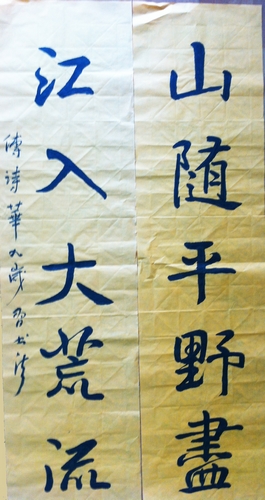 山随平野盡
江入大荒流
傅诗華九歲習书法